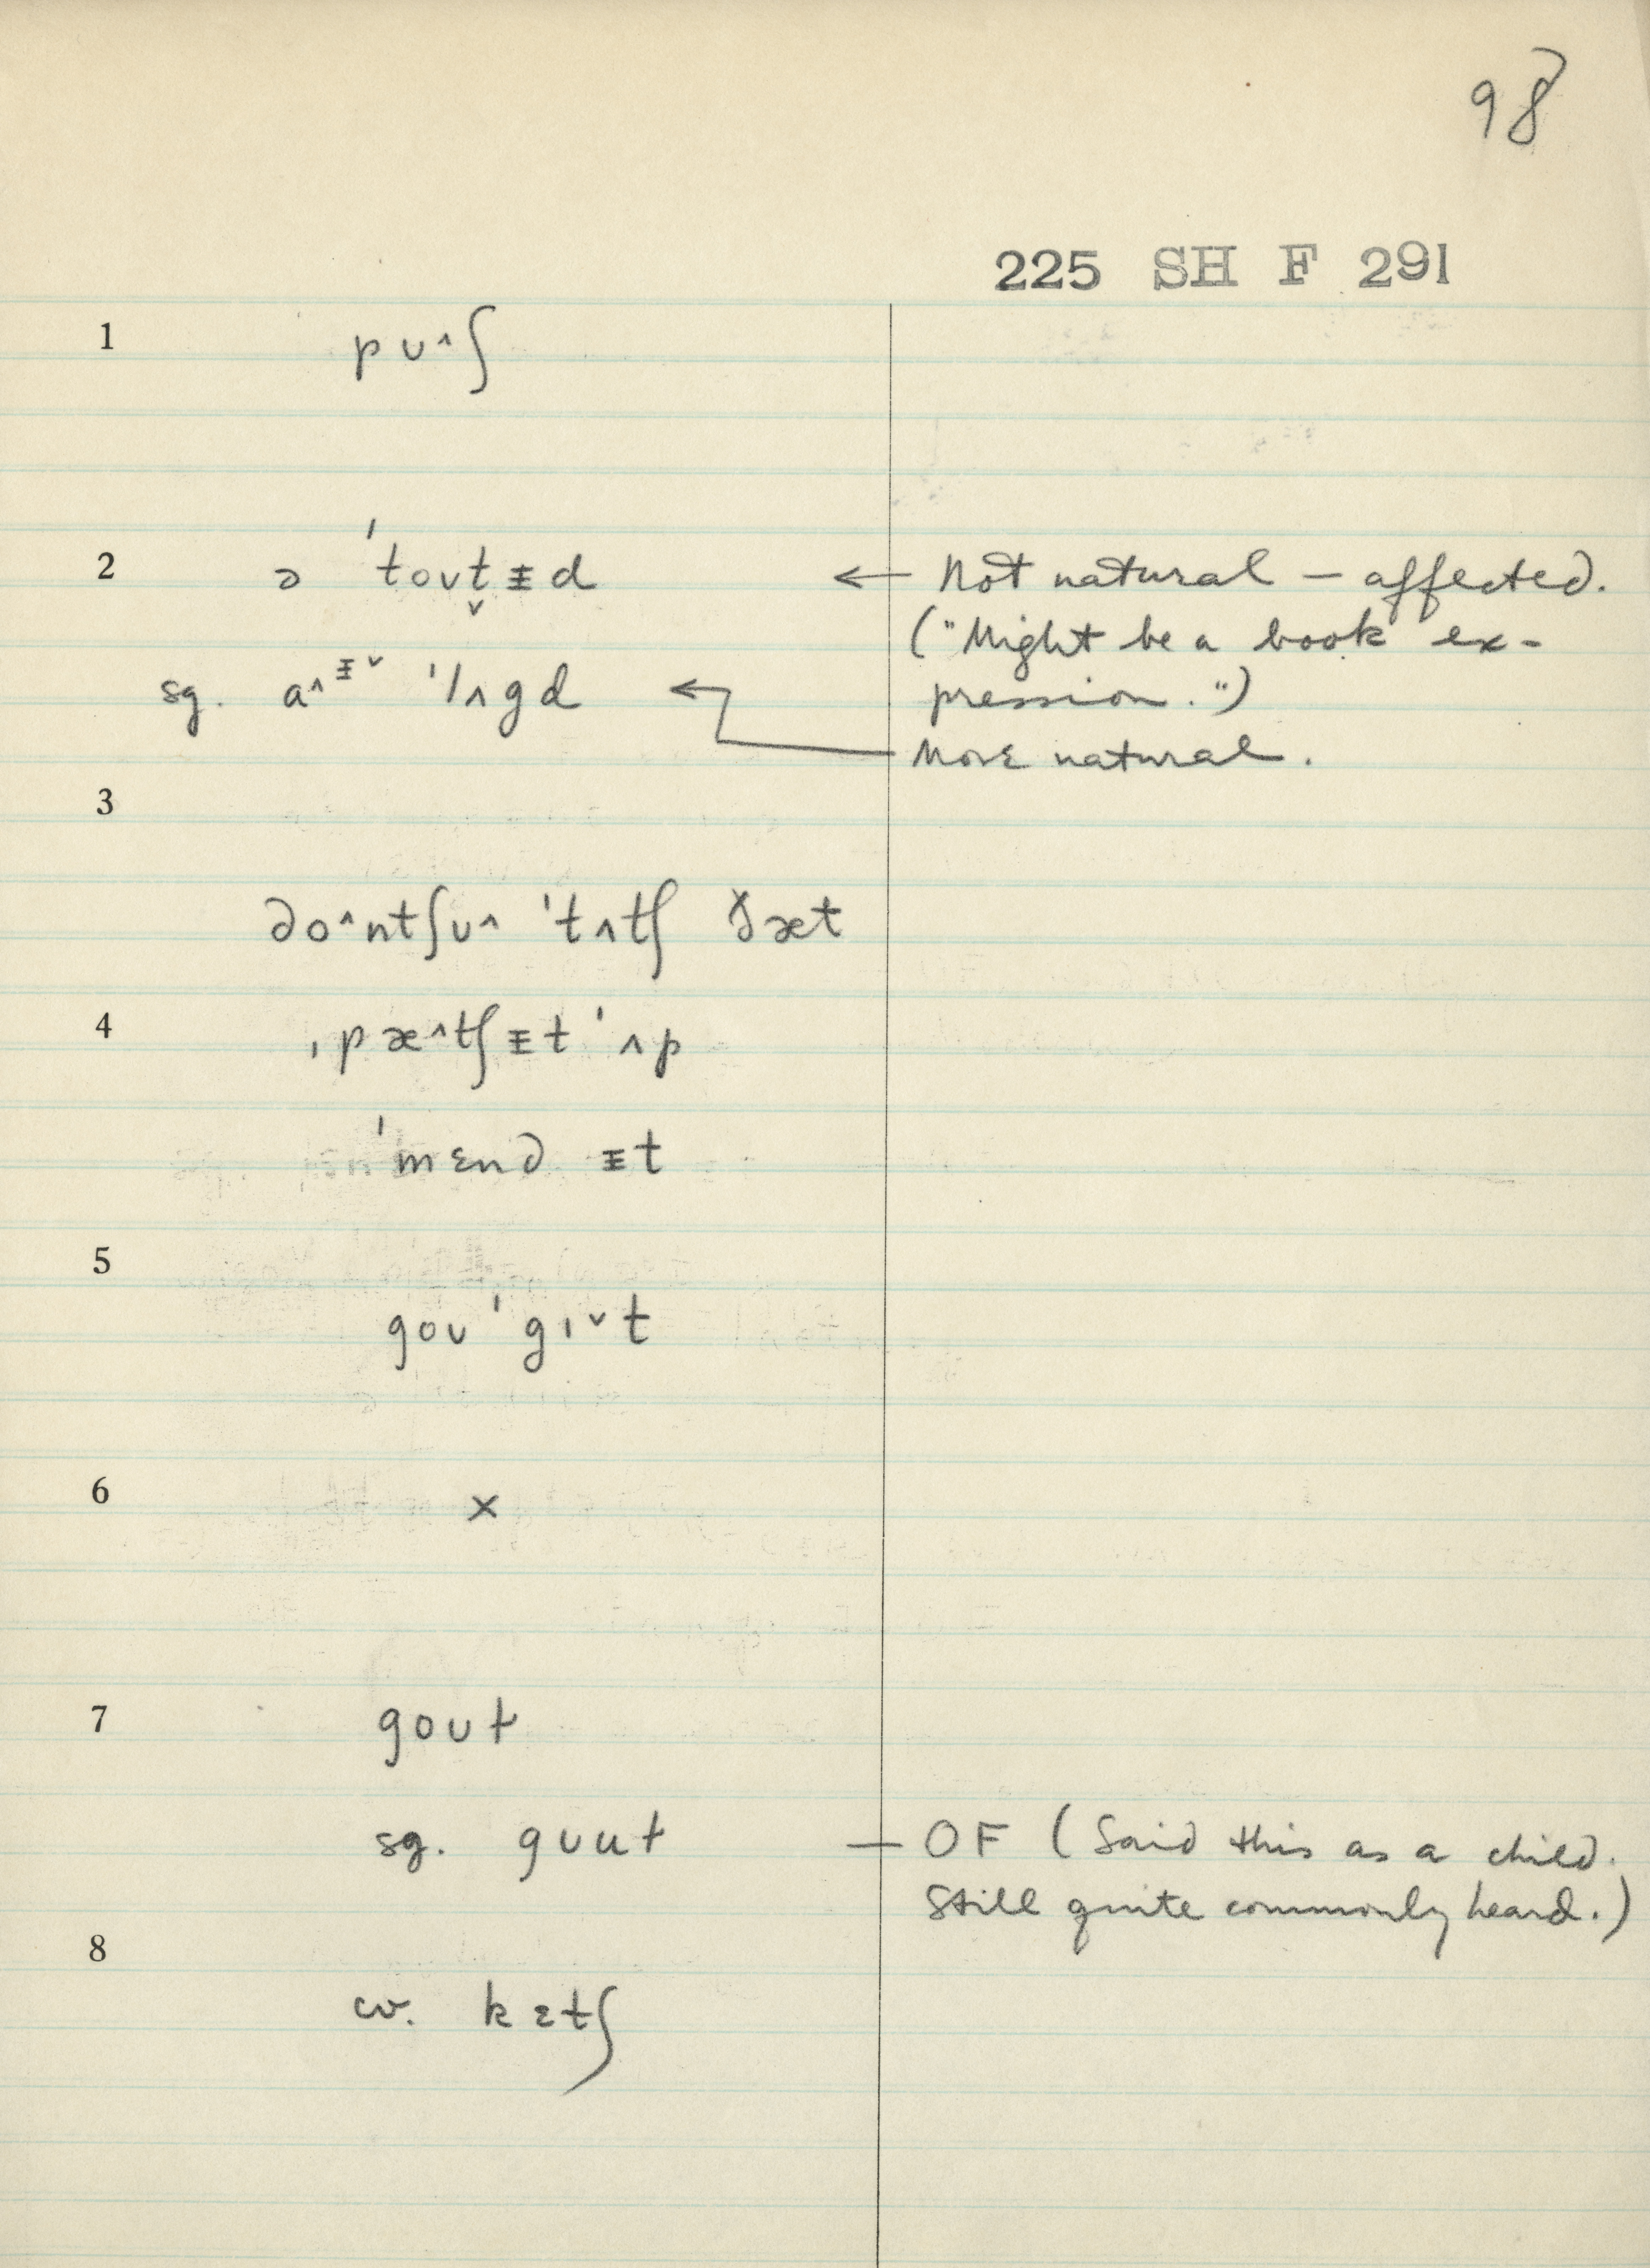 98
225 SH F 291
1 pʊ^ʃ
2 ə ˈtoʊt̬ᵻd ← Not natural – affected.
("Might be a book ex-
sg. a^ᵻ˅ ˈlʌgd ← pression.")
More natural.
3
do^ntʃʊ^ ˈtʌtʃ ðæt
4 ˌpæ^tʃᵻt ˈʌp
ˈmɛnd ᵻt
5
goʊ ˈgɪ˅t
6 ×
7 goʊɫ
sg. gʊuɫ – OF (Said this as a child.
Still quite commonly heard.)
8
cv. kɛtʃ